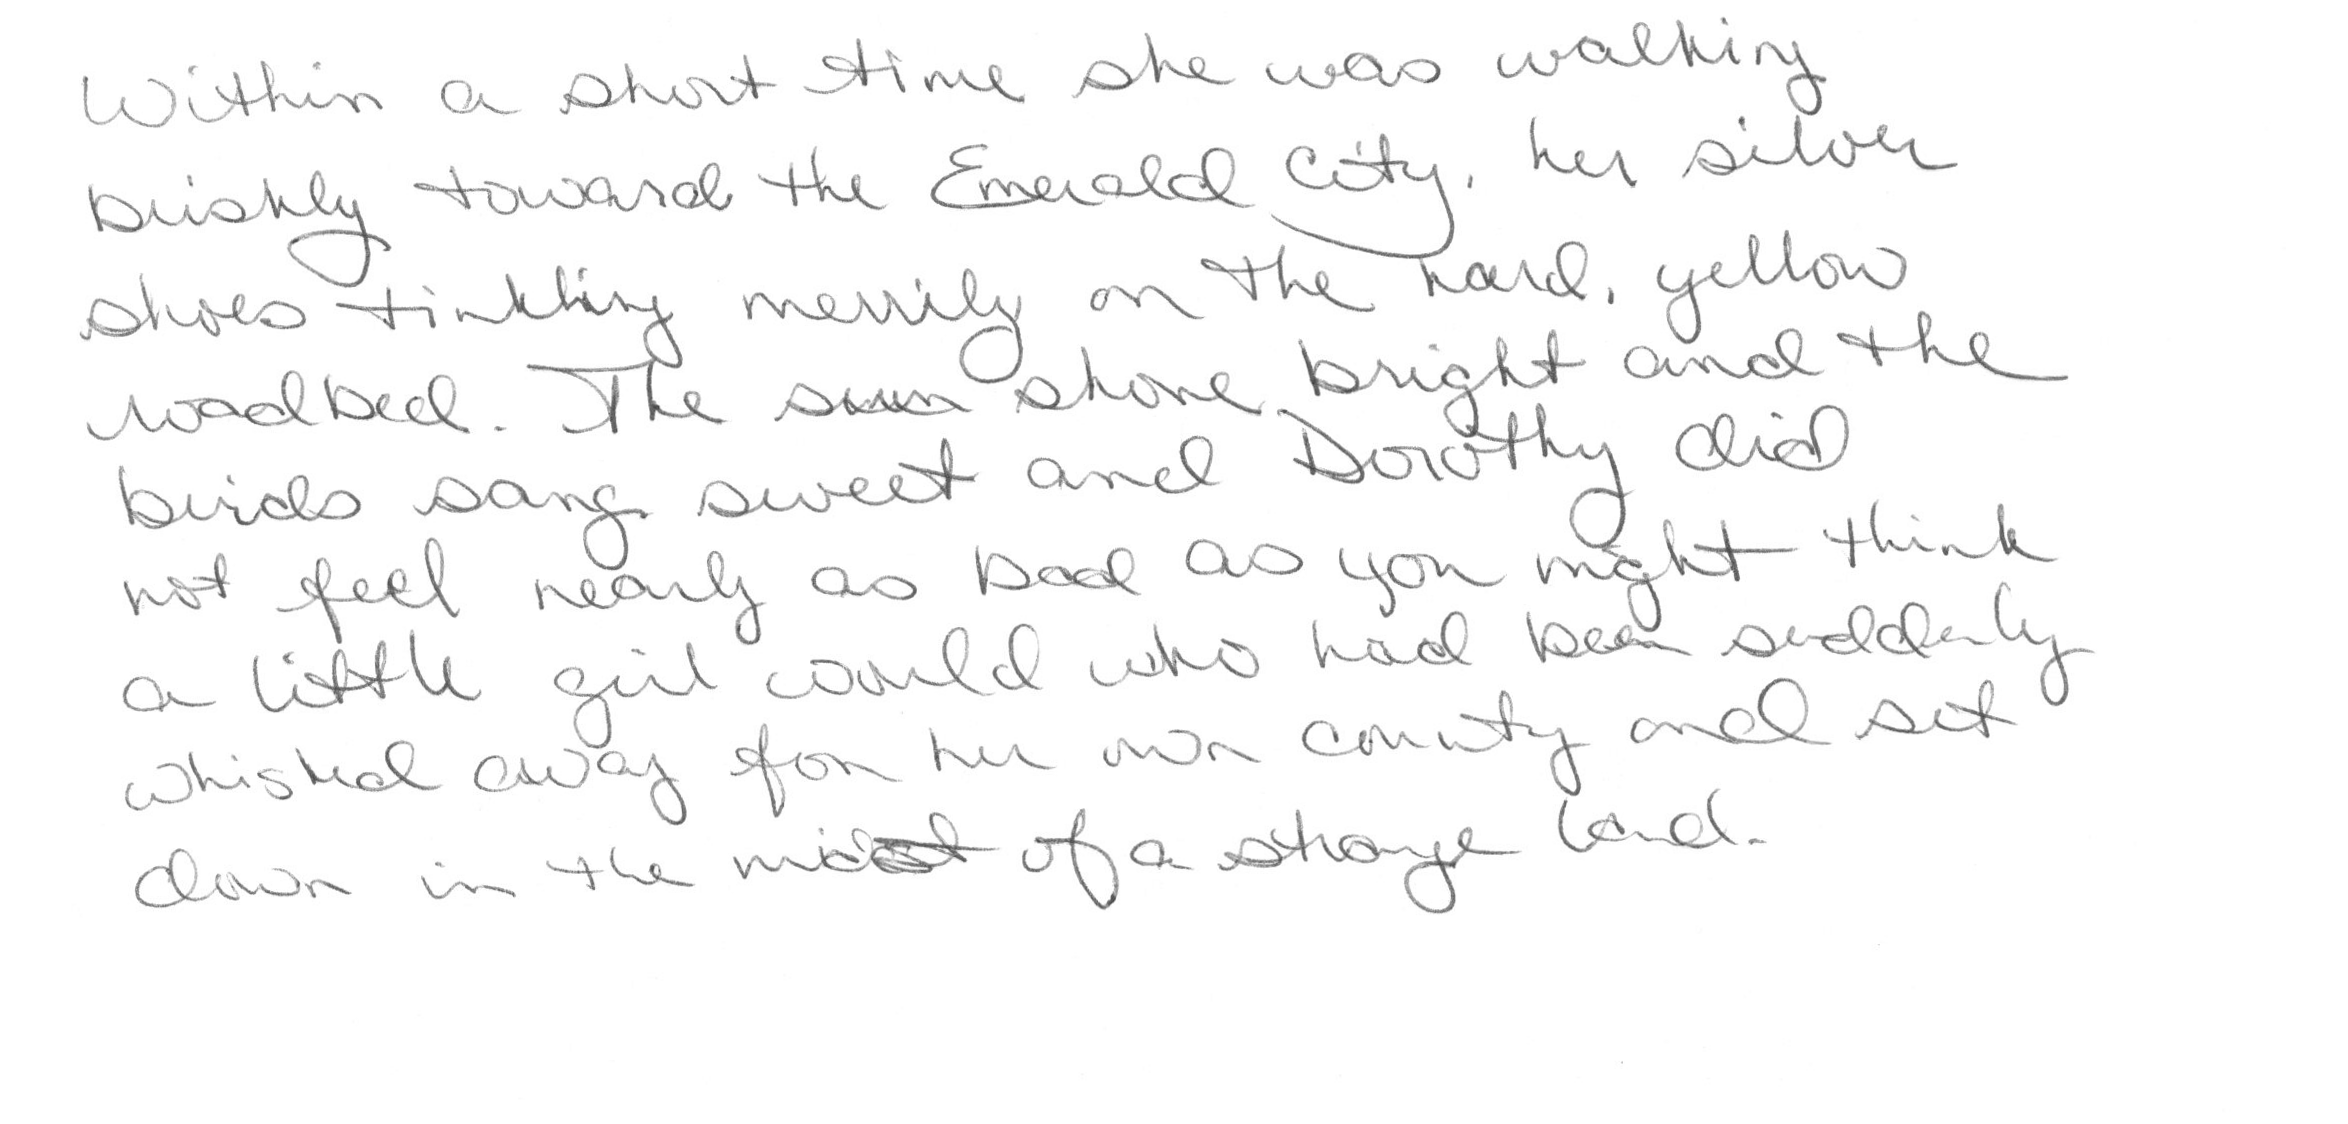 Within a short time she was walking
briskly toward the Emerald City, her silver
shoes tinkling merrily on the hard, yellow
roadbed. The sun shone bright and the
birds sang sweet and Dorothy did
not feel nearly as bad as you might think
a little girl would who had been suddenly
whisked away from her own country and set
down in the midst of a strange land.